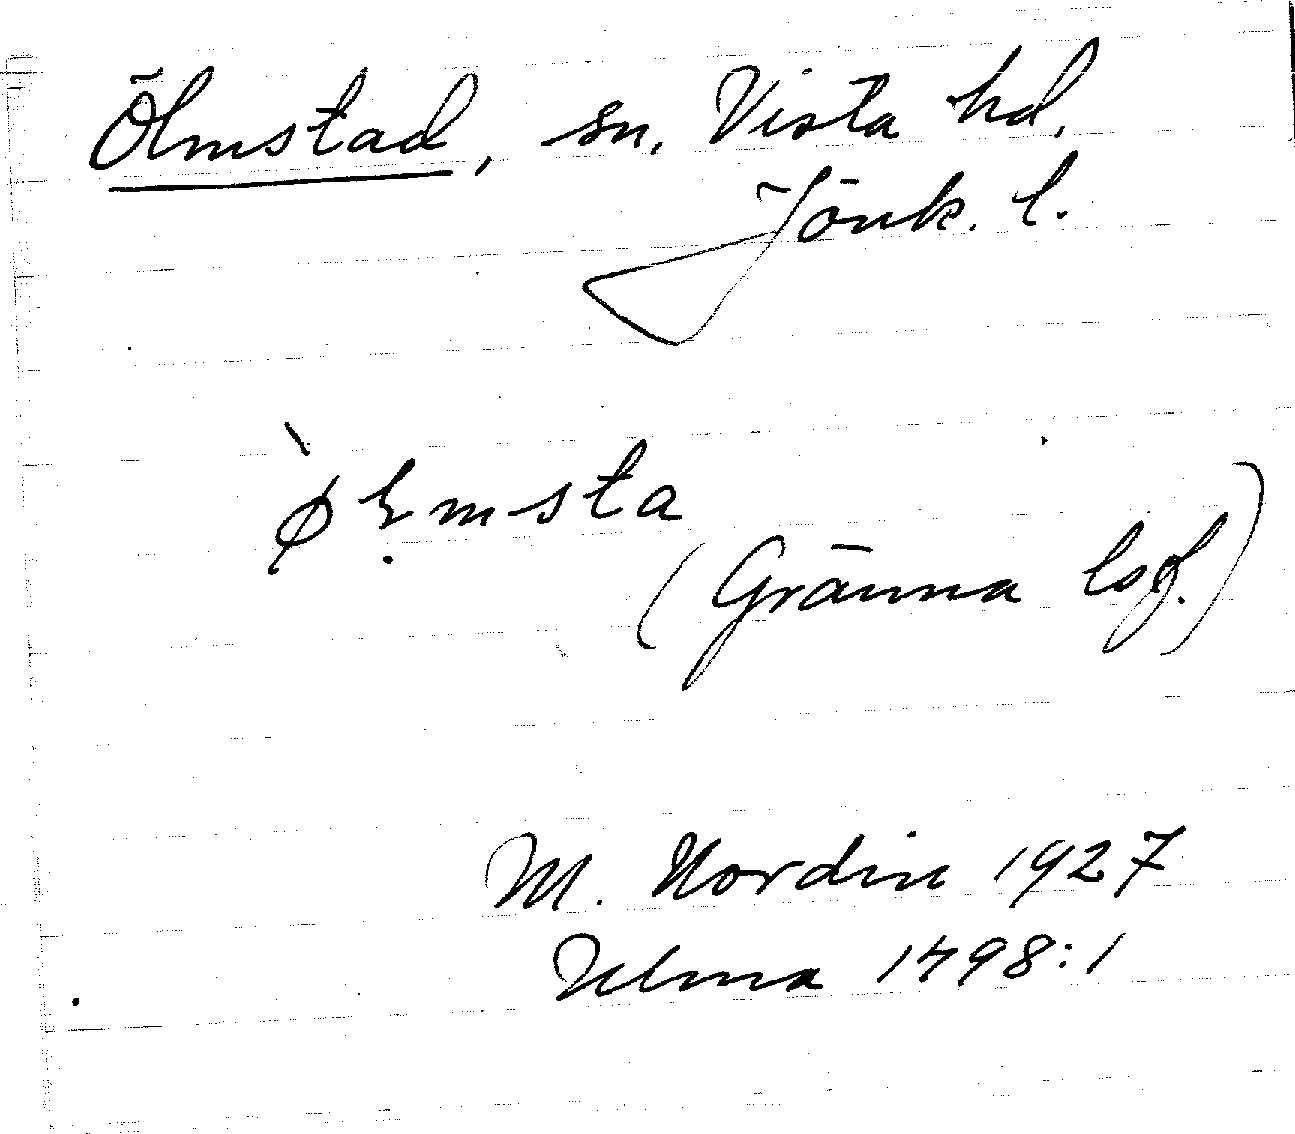 Ölmstad, sn, Vista hd.
Jönk. l.
(Gränna lsf.)
M. Nordin 1927
Ulma 1498:1